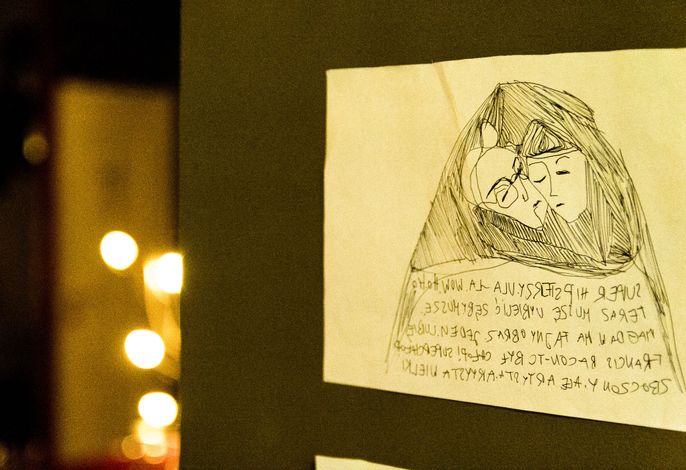 SUPER HIPSTERZY ULA-LA WOW HaHa
TERAZ MUSZĘ WYBIELIĆ SĘBY MUSZĘ
MAGDA NA FAJNY OBRAZ JEDEN LUBIĘ
FRANCIS BACON-TO BYŁ CHŁOP! SUPERCHŁOP
ZBOCSONY, ALE ARTYSTA, ARTYSTA WIELKI